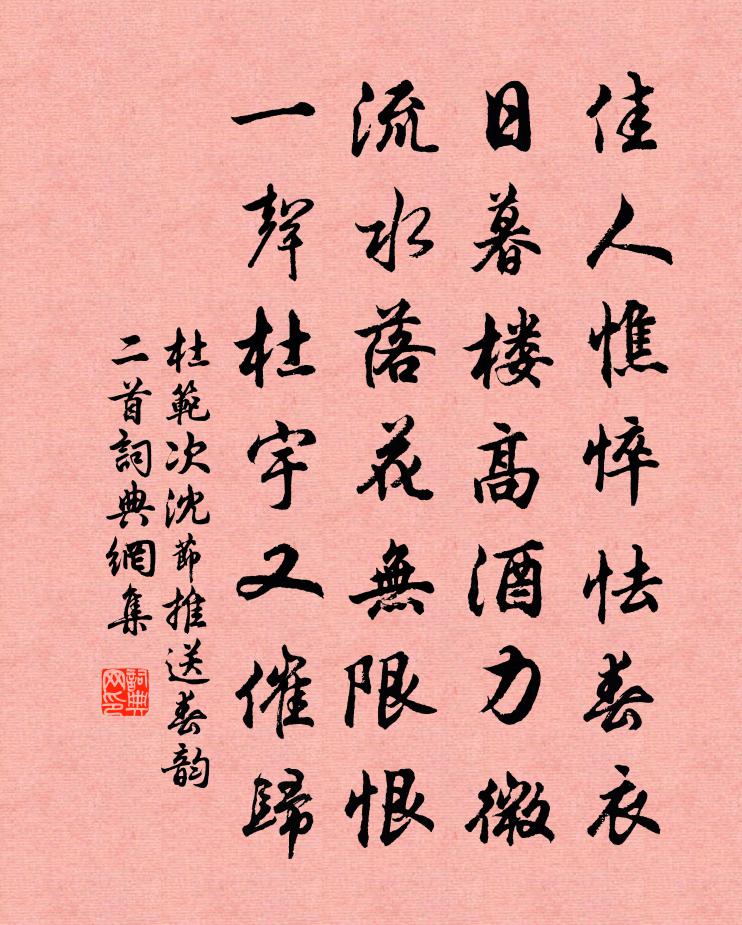 佳人憔悴怯春衣
日暮楼高酒力微
流水落花無限恨
一聲杜宇又催歸
杜範次沈節推送春韵
二首詞典網集
詞典
网印